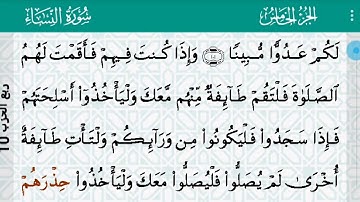 سُورَةُ النِّسَاءِ الجُزءُ الخَامِسُ
لَكُمْ عَدُوًّا مُّبِينًا ١٠١ وَإِذَا كُنتَ فِيهِمْ فَأَقَمْتَ لَهُمُ
ٱلصَّلَوٰةَ فَلْتَقُمْ طَآئِفَةٌ مِّنْهُم مَّعَكَ وَلْيَأْخُذُوٓا۟ أَسْلِحَتَهُمْ
فَإِذَا سَجَدُوا۟ فَلْيَكُونُوا۟ مِن وَرَآئِكُمْ وَلْتَأْتِ طَآئِفَةٌ
أُخْرَىٰ لَمْ يُصَلُّوا۟ فَلْيُصَلُّوا۟ مَعَكَ وَلْيَأْخُذُوا۟ حِذْرَهُمْ
ربع الحزب 10